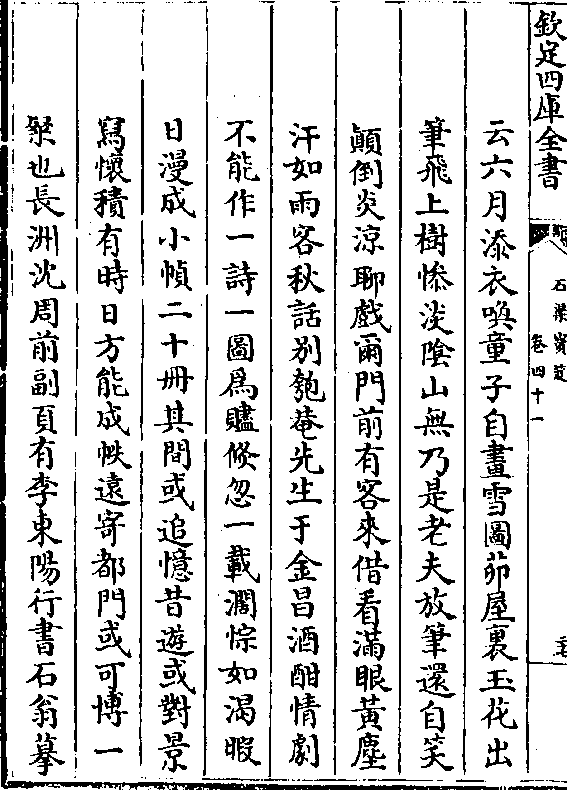 欽定四庫全書
石渠寶笈
卷四十一
云六月添衣喚童子自畫雪圖茆屋裏玉花出
筆飛上樹慘淡陰山無乃是老夫放筆還自笑
顛倒炎涼聊戲爾門前有客來借看滿眼黃塵
汗如雨客秋話别匏菴先生于金昌酒酣情劇
不能作一詩一圖爲贐倐忽一載濶悰如渴暇
日漫成小幀二十冊其間或追憶昔遊或對景
寫懷積有時日方能成帙遠寄都門或可博一
粲也長洲沈周前副頁有李東陽行書石翁摹